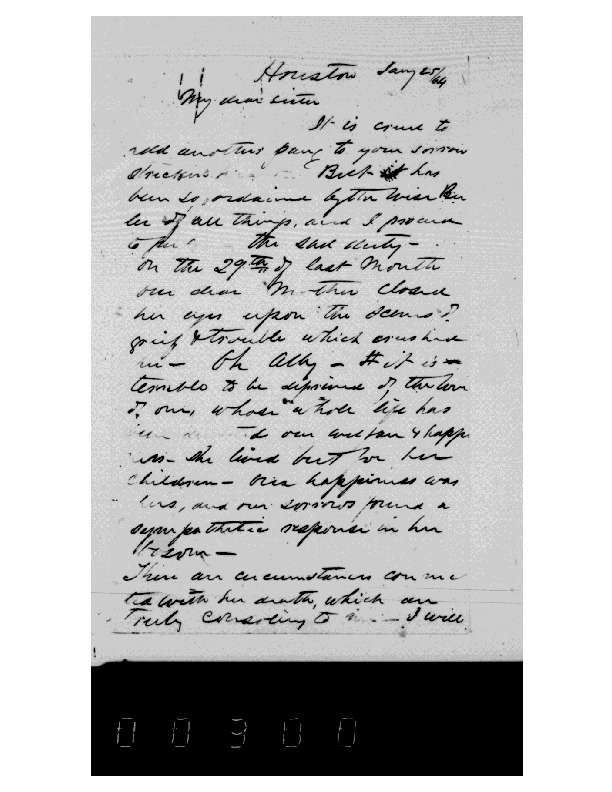 Houston Jany 25/64
My dear sister
It is cruel to
add another pang to your sorrow
stricken But it has
been so ordained by the Wise Ru
ler of all things, and I proceed
to the sad duty -
on the 29th of last Month
our dear Mother closed
her eyes upon the scenes of
grief & trouble which crushed
her - Oh Ally - it is
terrible to be deprived of the love
of one, whose whole life has
been to our welfare & happi
ness - She lived but for her
children - Our happiness was
hers, and our sorrows found a
sympathetic response in her
bosom -
There are circumstances connec
ted with her death, which are
truly consoling to - I will
00900